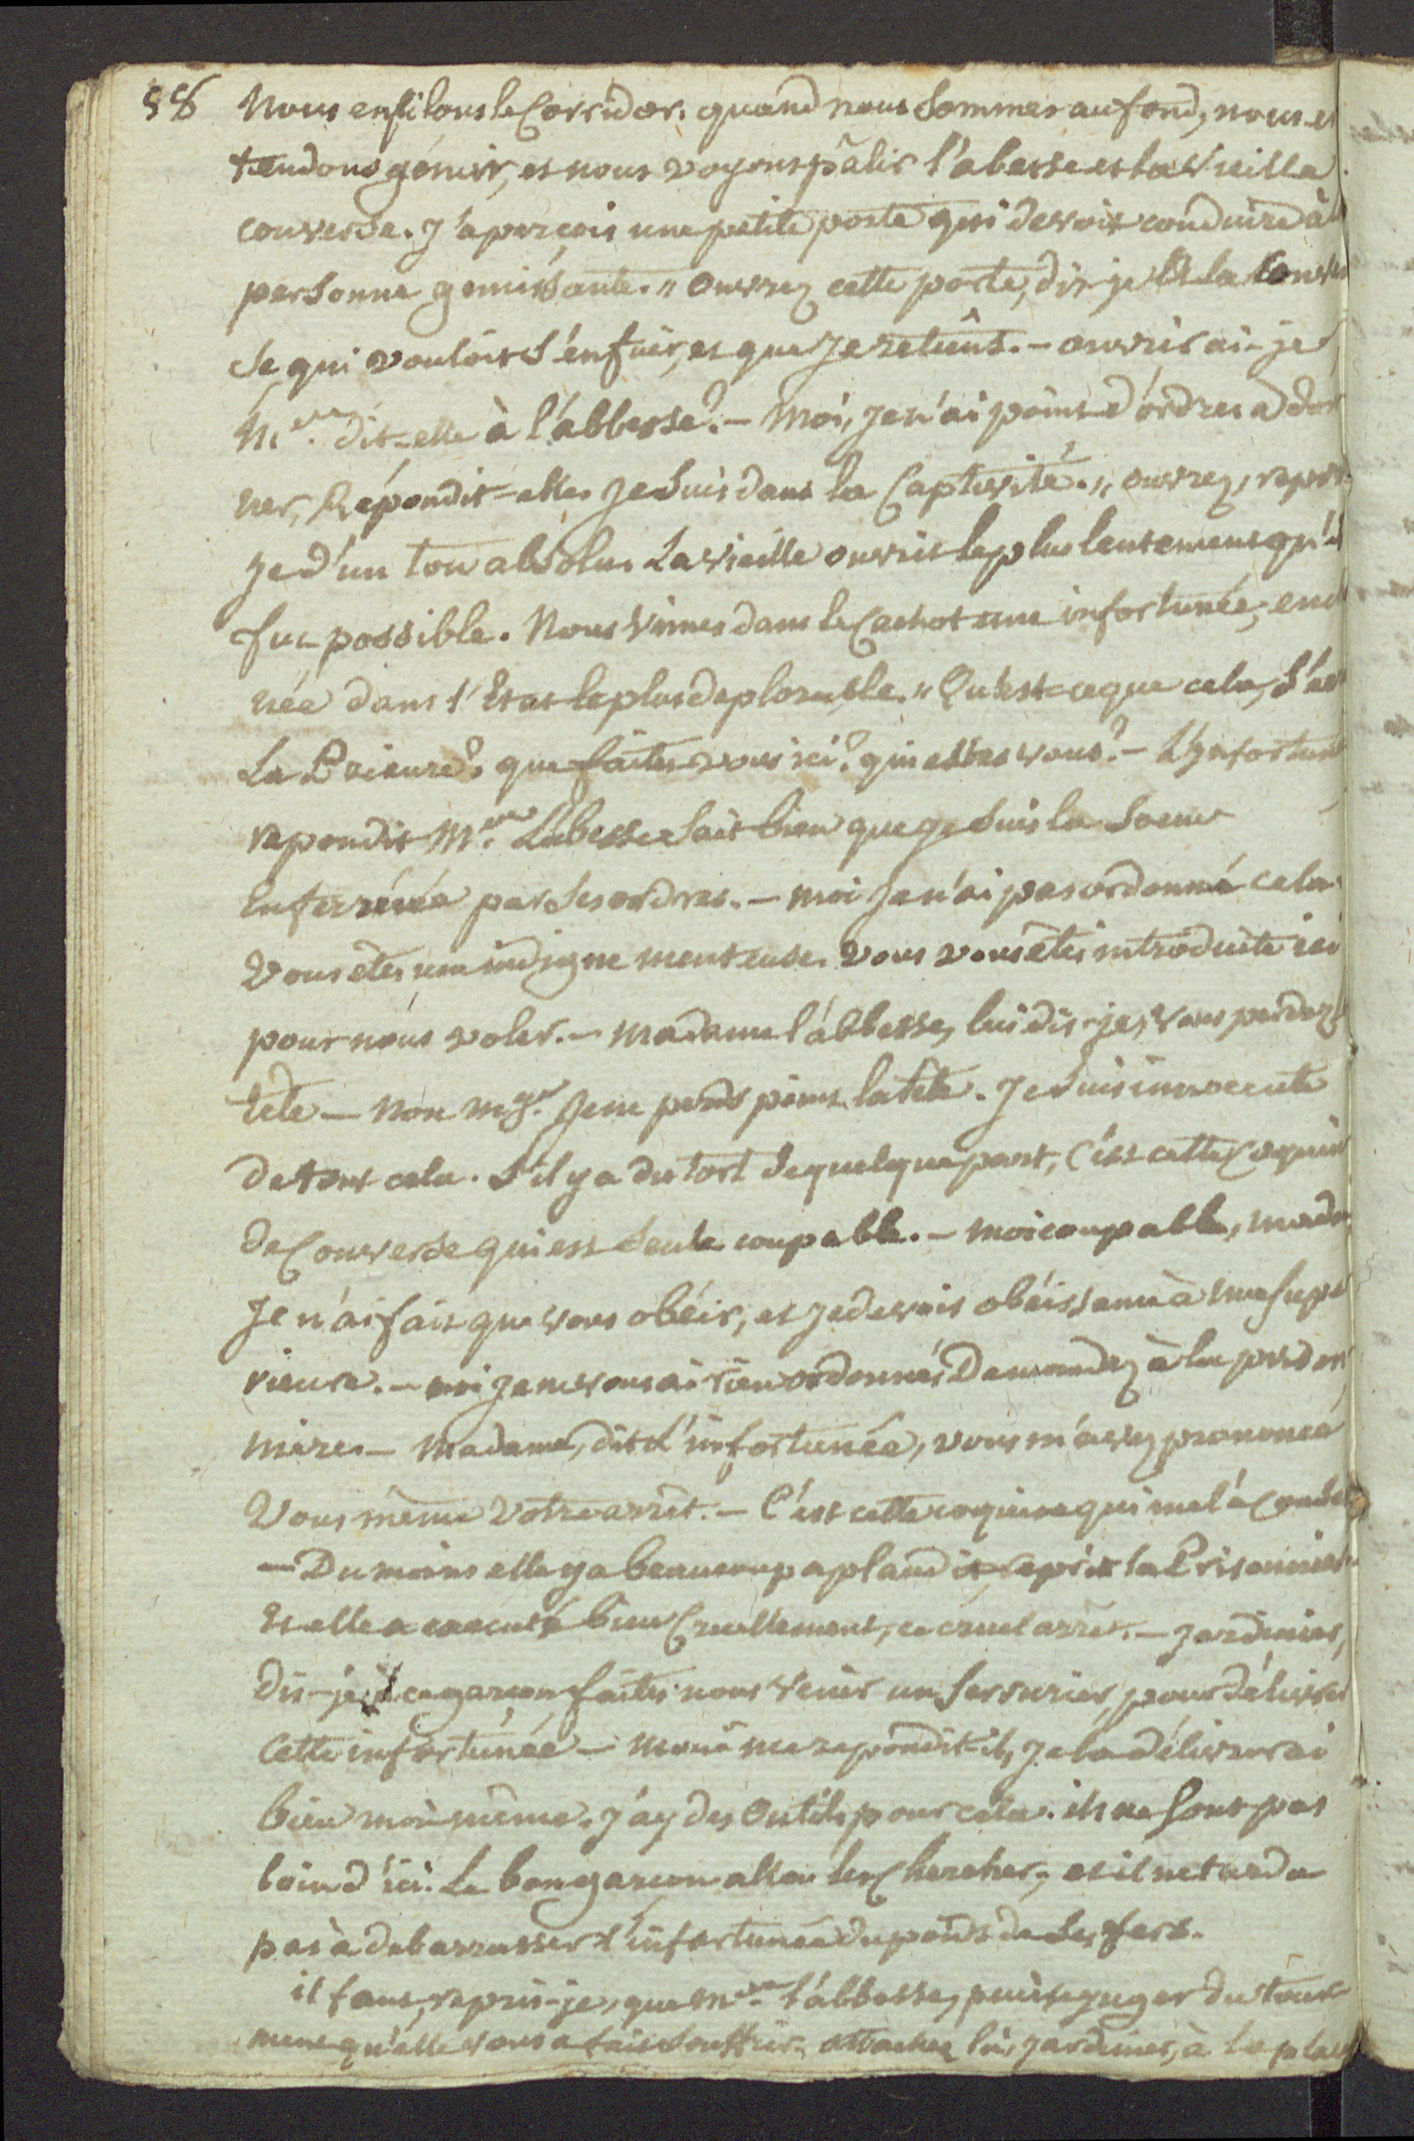 58 Nous enfilons le Corridor. quand nous Sommes au fond, nous en
tendons gémir, et nous voyons pâlir l'abesse et la vieille
converse. J'aperçois une petite porte qui devoit conduire à la
personne gemissante. " Ouvrez cette porte, dis-je à la Conver
se qui vouloit S'enfuir, et que je retiens. - ouvrirai-je
Me. dit-elle à l'abbesse? - Moi, je n'ai point d'ordres a don
ner, Répondit-elle. Je Suis dans la Captivité. " ouvrez, repris-
je d'un ton absolu. La vieille ouvrit le plus lentement qu'il
fut possible. Nous vimes dans le Cachot une infortunée, enchai
née dans l'Etat le plus deplorable. " Qu'est-ce que cela, S'ecria
La Prieure? que faites vous ici? qui estes vous? - L'Infortunée
repondit Me. L'abesse Sait bien que je Suis la Soeur
Enferrée par Ses ordres. - moi Je n'ai pas ordonné cela.
Vous êtes une indigne menteuse. Vous vous êtes introduite ici
pour nous voler. - Madame l'abbesse, lui dis-je, vous perdez la
tête - Non mgr. Je ne perds point la tête. Je Suis innocente
de tout cela. S'il y a du tort de quelque part, C'est cette Coquine
de Converse qui est Seule coupable. - Moi coupable, madame
Je n'ai fait que vous obéir, et je devois obéissance à ma Supé
rieure. - moi je ne vous ai rien ordonné. Demandez à la prison
niere. - Madame, dit l'infortunée, vous m'avez prononcé
Vous même Votre arrêt. - C'est cette coquine qui me l'a Conseillé
- Du moins elle y a beaucoup aplaudi reprit la Prisonniere
Et elle a executé bien Cruellement, ce cruel arrêt. - Jardinier,
dis-je à ce garçon, faites nous venir un Serrurier, pour délivrer
cette infortunée - me repondit-il, je la délivrerai
bien moi même. J'ay des Outils pour cela. ils ne Sont pas
loin d'ici. Le bon garçon alla les Chercher, et il ne tarda
pas à debarrasser l'infortunée du poids de Ses fers.
il faut, repris-je, que Me. l'abbesse, puisse juger du tour
ment qu'elle vous a fait Souffrir. attachez la, jardinier, à la place